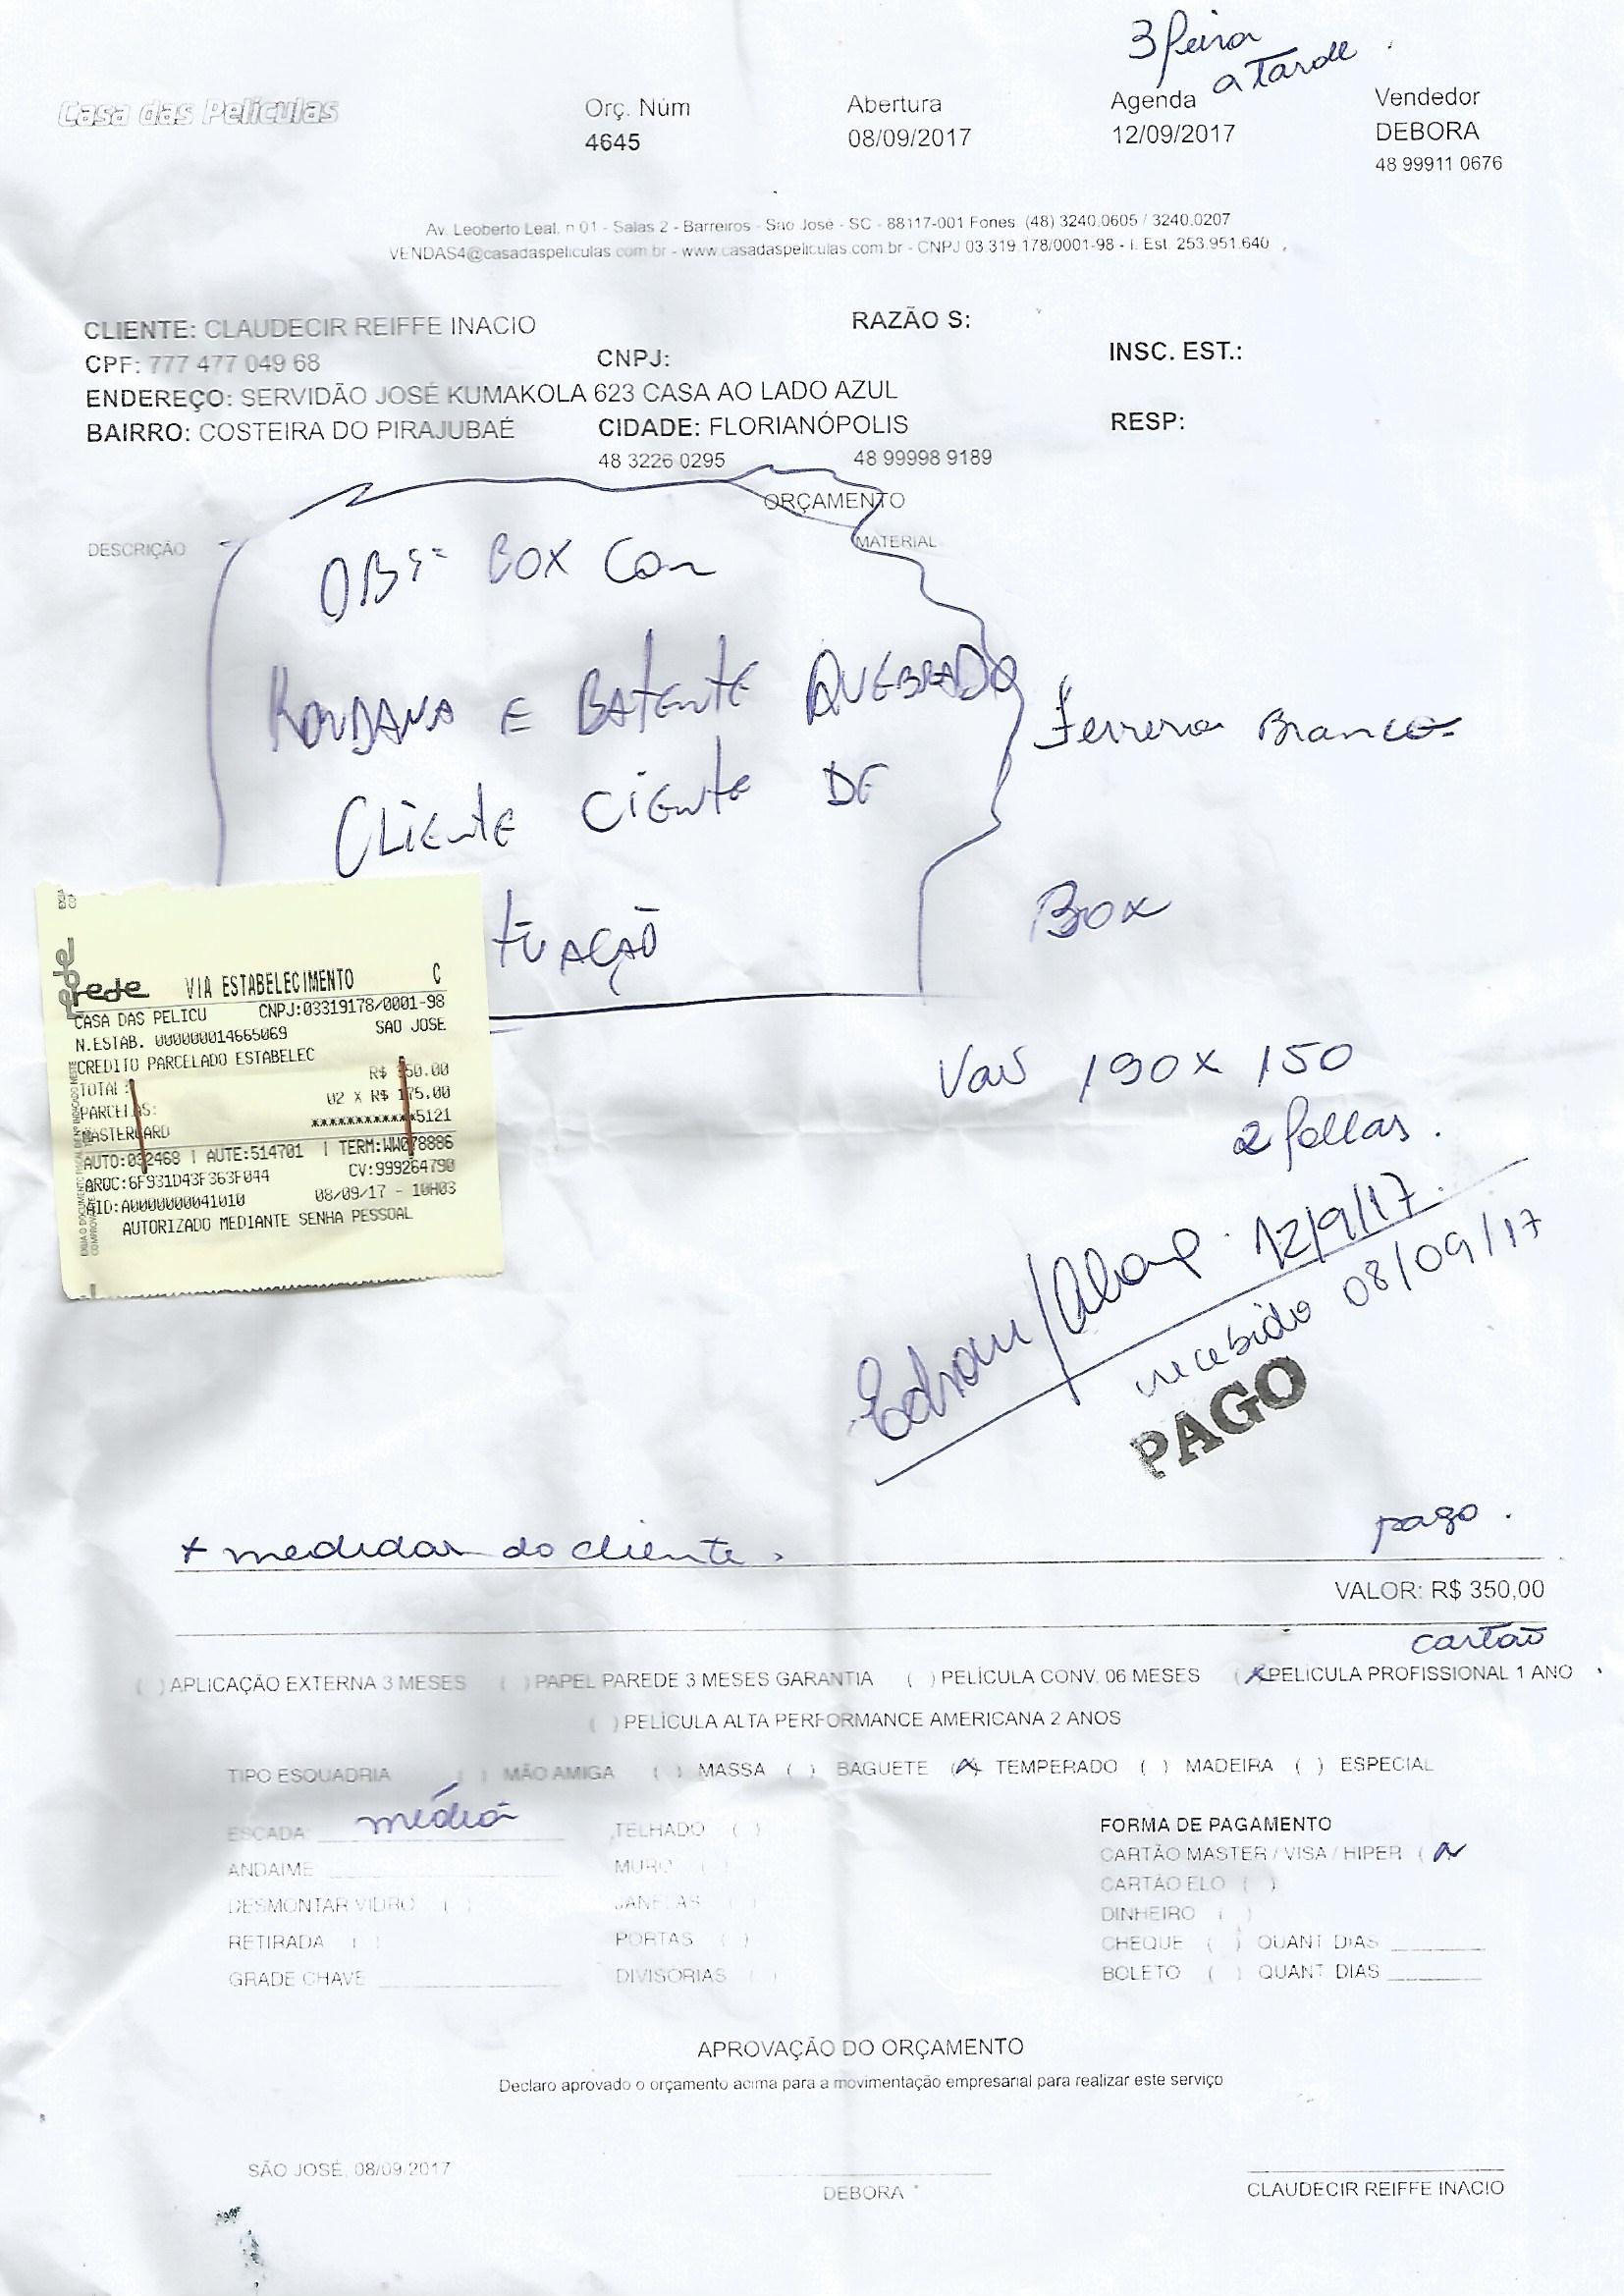 3 feira
a tarde
Casa das Películas
Orç. Núm Abertura Agenda Vendedor
4645 08/09/2017 12/09/2017 DEBORA
48 99911 0676
Av. Leoberto Leal, n 01 - Salas 2 - Barreiros - São José - SC - 88117-001 Fones (48) 3240.0605 / 3240.0207
VENDAS4@casadaspeliculas.com.br - www.casadaspeliculas.com.br - CNPJ 03.319.178/0001-98 - I. Est. 253.951.640
CLIENTE: CLAUDECIR REIFFE INACIO RAZÃO S:
CPF: 777 477 049 68 CNPJ: INSC. EST.:
ENDEREÇO: SERVIDÃO JOSÉ KUMAKOLA 623 CASA AO LADO AZUL
BAIRRO: COSTEIRA DO PIRAJUBAÉ CIDADE: FLORIANÓPOLIS RESP:
48 3226 0295 48 99998 9189
ORÇAMENTO
DESCRIÇÃO MATERIAL
OBS: BOX Com
ROUDANA E BATENTE QUEBRADO
Branco
CLIENTE CIENTE DE
TUAÇÃO
Box
rede VIA ESTABELECIMENTO C
CASA DAS PELICU CNPJ:03319178/0001-98
N.ESTAB. 000000014665069 SAO JOSE
CREDITO PARCELADO ESTABELEC
TOTAL: R$ 350.00
PARCELAS: 02 X R$ 175.00
MASTERCARD ************5121
AUTO:032468 | AUTE:514701 | TERM:WW078886
ARQC:6F931D43F363F044 CV:999264790
AID:A0000000041010 08/09/17 - 10H03
AUTORIZADO MEDIANTE SENHA PESSOAL
190 x 150
2 folhas.
12/9/17
recebido 08/09/17
PAGO
+ medidas do cliente. pago.
VALOR: R$ 350,00
cartão
( ) APLICAÇÃO EXTERNA 3 MESES ( ) PAPEL PAREDE 3 MESES GARANTIA ( ) PELÍCULA CONV. 06 MESES (X PELICULA PROFISSIONAL 1 ANO
( ) PELÍCULA ALTA PERFORMANCE AMERICANA 2 ANOS
TIPO ESQUADRIA ( ) MÃO AMIGA ( ) MASSA ( ) BAGUETE (X) TEMPERADO ( ) MADEIRA ( ) ESPECIAL
ESCADA: média TELHADO ( ) FORMA DE PAGAMENTO
ANDAIME MURO ( ) CARTÃO MASTER / VISA / HIPER (X
DESMONTAR VIDRO ( ) JANELAS ( ) CARTÃO ELO ( )
DINHEIRO ( )
RETIRADA ( ) PORTAS ( ) CHEQUE ( ) QUANT DIAS
GRADE CHAVE DIVISORIAS ( ) BOLETO ( ) QUANT DIAS
APROVAÇÃO DO ORÇAMENTO
Declaro aprovado o orçamento acima para a movimentação empresarial para realizar este serviço
SÃO JOSÉ, 08/09/2017
DEBORA CLAUDECIR REIFFE INACIO